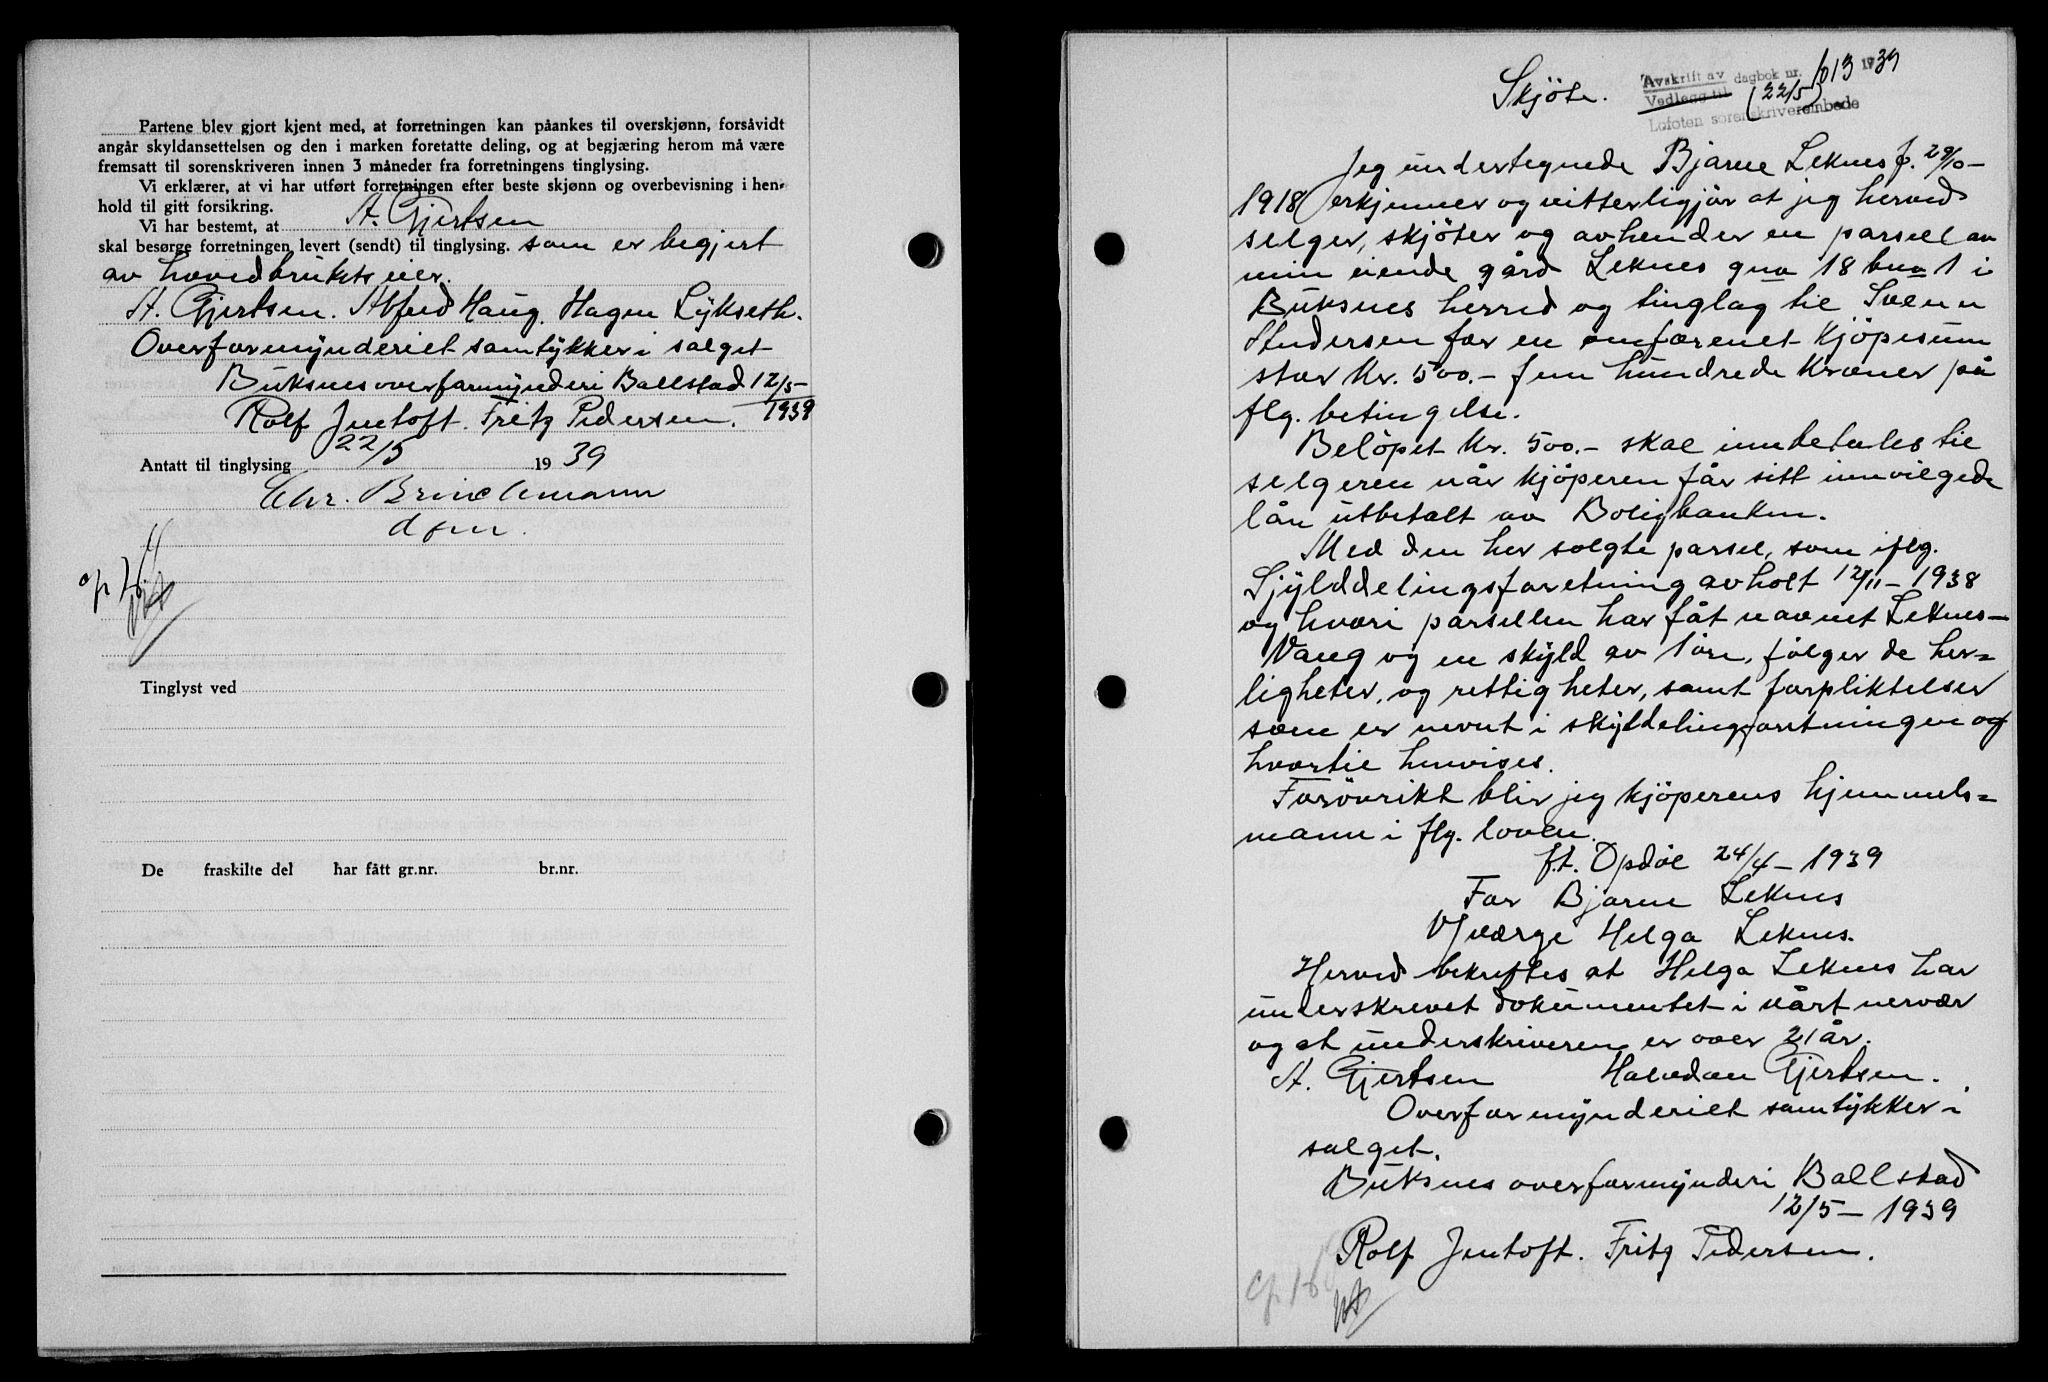 Partene blev gjort kjent med, at forretningen kan påankes til overskjønn, forsåvidt
angår skyldansettelsen og den i marken foretatte deling, og at begjæring herom må være
fremsatt til sorenskriveren innen 3 måneder fra forretningens tinglysing.
Vi erklærer, at vi har utført forretningen efter beste skjønn og overbevisning i hen-
hold til gitt forsikring.
Vi har bestemt, at A. Gjertsen
skal besørge forretningen levert (sendt) til tinglysing. som er begjert
av hovedbrukets eier.
A. Gjertsen. Alfred Haug. Hagen Lykseth.
Overformynderiet samtykker i salget
Buksnes overformynderi Ballstad 12/5-
1939
Rolf Jentoft. Fritz Pedersen.
Antatt til tinglysing 22/5 1939
Chr. Brinchmann
dom.
Tinglyst ved
De fraskilte del har fått gr.nr. br.nr.
Skjöte. Avskrift av dagbok nr. 1013 1939
Vedlegg til (22/5)
Lofoten sorenskriverembede
Jeg undertegnede Bjarne Leknes f. 29/10-
1918 erkjenner og vitterligjör at jeg herved
selger, skjöter og avhender en parsell av
min eiende gård Leknes gno 18 bno 1 i
Buksnes herred og tinglag til Svenn
Sundersen for en omforenet kjöpesum
stor kr. 500.- fem hundrede kroner på
flg. betingelse.
Belöpet kr. 500.- skal innbetales til
selgeren når kjöperen får sitt innvilgede
lån utbetalt av Boligbanken.
Med den her solgte parsel, som iflg.
Sjylddelingsforetning avholt 12/11-1938
og hvori parsellen har fåt navnet Leknes-
Vang og en skyld av 1 öre, følger de her-
ligheter, og rettigheter, samt forpliktelser
som er nevnt i skyldelingsforetningen og
hvortil henvises.
Forövrikt blir jeg kjöperens hjemmels-
mann i flg. loven.
f.t. Opdöl 24/4-1939
For Bjarne Leknes
Værge Helga Leknes.
Herved bekreftes at Helga Leknes har
underskrevet dokumentet i vårt nervær
og at underskriveren er over 21 år.
A. Gjertsen Halvdan Gjertsen.
Overformynderiet samtykker i
salget.
Buksnes overformynderi Ballstad
12/5-1939
Rolf Jentoft. Fritz Pedersen.